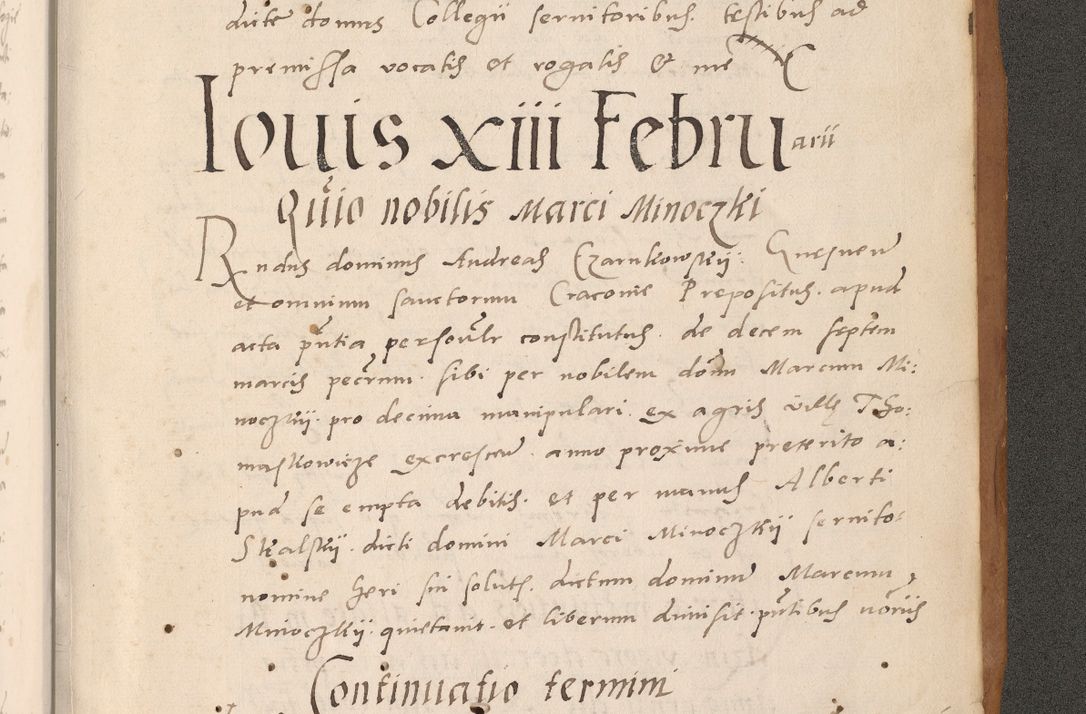 dicte domus Collegii servitoribus testibus ad
premissa vocatis et rogatis Et me
Iouis xiii Februarii
Quito nobilis Marci Minoczki
Rndus dominus Andreas Czarnkowskij Gnesnen
et omnium sanctorum Cracovie Prepositus apud
acta pñtia personalr constitutus de decem septem
marcis pecrum sibi per nobilem dom Marcum Mi:
noczkij pro decima manipulari ex agris ville Tho:
maskowicze excrescen anno proxime preterito a:
pud se empta debitis et per manus Alberti
Skalskij dicti domini Marci Minoczkij servito:
nomine heri sui solutis dictum dominum Marcum
Minoczkij quietavit et liberum dimisit pñtibus
Continuatio termini